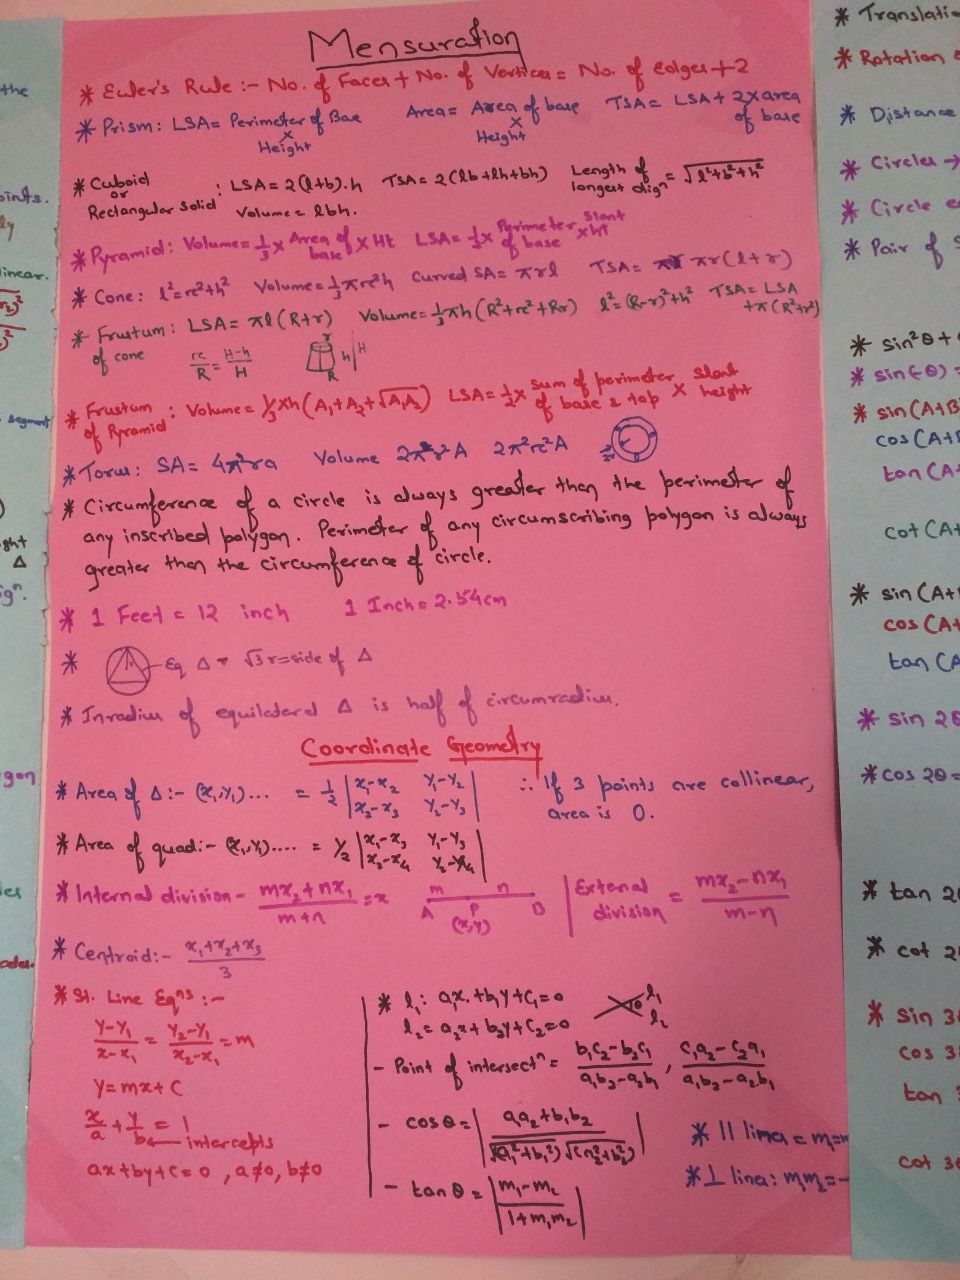 Mensuration
* Euler's Rule :- No. of Faces + No. of Vertices = No. of edges + 2
* Prism: LSA = Perimeter of Base × Height Area = Area of base × Height TSA = LSA + 2 × area of base
* Cuboid or Rectangular Solid : LSA = 2(l+b).h TSA = 2(lb+lh+bh) Length of longest diagⁿ = √l²+b²+h²
Volume = lbh.
* Pyramid: Volume = 1/3 × Area of base × Ht LSA = 1/2 × Perimeter of base × Slant ht
* Cone: l²=r²+h² Volume = 1/3 πr²h Curved SA = πrl TSA = πr(l+r)
* Frustum of cone : LSA = πl(R+r) Volume = 1/3 πh(R²+r²+Rr) l²=(R-r)²+h² TSA = LSA +π(R²+r²)
r/R = H-h/H r R h H
* Frustum of Pyramid : Volume = 1/3 × h(A₁+A₂+√A₁A₂) LSA = 1/2 × sum of perimeter of base & top × Slant height
* Torus: SA = 4π²ra Volume 2π²r²A 2π²r²A
* Circumference of a circle is always greater than the perimeter of
any inscribed polygon. Perimeter of any circumscribing polygon is always
greater than the circumference of circle.
* 1 Feet = 12 inch 1 Inch = 2.54cm
* Eq Δ √3 r = side of Δ
* Inradius of equilateral Δ is half of circumradius.
Coordinate Geometry
* Area of Δ :- (x₁,y₁)... = 1/2 | x₁-x₂ y₁-y₂ | ∴ If 3 points are collinear,
| x₂-x₃ y₂-y₃ | area is 0.
* Area of quad :- (x₁,y₁).... = 1/2 | x₁-x₃ y₁-y₃ |
| x₂-x₄ y₂-y₄ |
* Internal division - mx₂+nx₁/m+n = x m n A P B (x,y) | External division = mx₂-nx₁/m-n
* Centroid :- x₁+x₂+x₃/3
* St. Line Eqⁿs :-
y-y₁/x-x₁ = y₂-y₁/x₂-x₁ = m
y = mx + c
x/a + y/b = 1
intercepts
ax+by+c=0, a≠0, b≠0
* l₁: a₁x+b₁y+c₁=0 θ l₁
l₂ = a₂x+b₂y+c₂=0 l₂
- Point of intersectⁿ = b₁c₂-b₂c₁/a₁b₂-a₂b₁ , c₁a₂-c₂a₁/a₁b₂-a₂b₁
- cos θ = | a₁a₂+b₁b₂/√(a₁²+b₁²) √(a₂²+b₂²) |
- tan θ = | m₁-m₂/1+m₁m₂ |
* || lines = m₁=m
* ⊥ lines: m₁m₂=-
the
oints.
ly
linear.
segment
ght
Δ
ign.
ygon
* Translati
* Rotation
* Distance
* Circles →
* Circle e
* Pair of S
* sin²θ +
* sin(-θ) =
* sin(A+B
cos(A+B
tan(A+
cot(A+
* sin(A+
cos(A+
tan(A
* sin 2θ
* cos 2θ=
* tan 2
* cot 2
* sin 3
cos 3
tan
cot 3